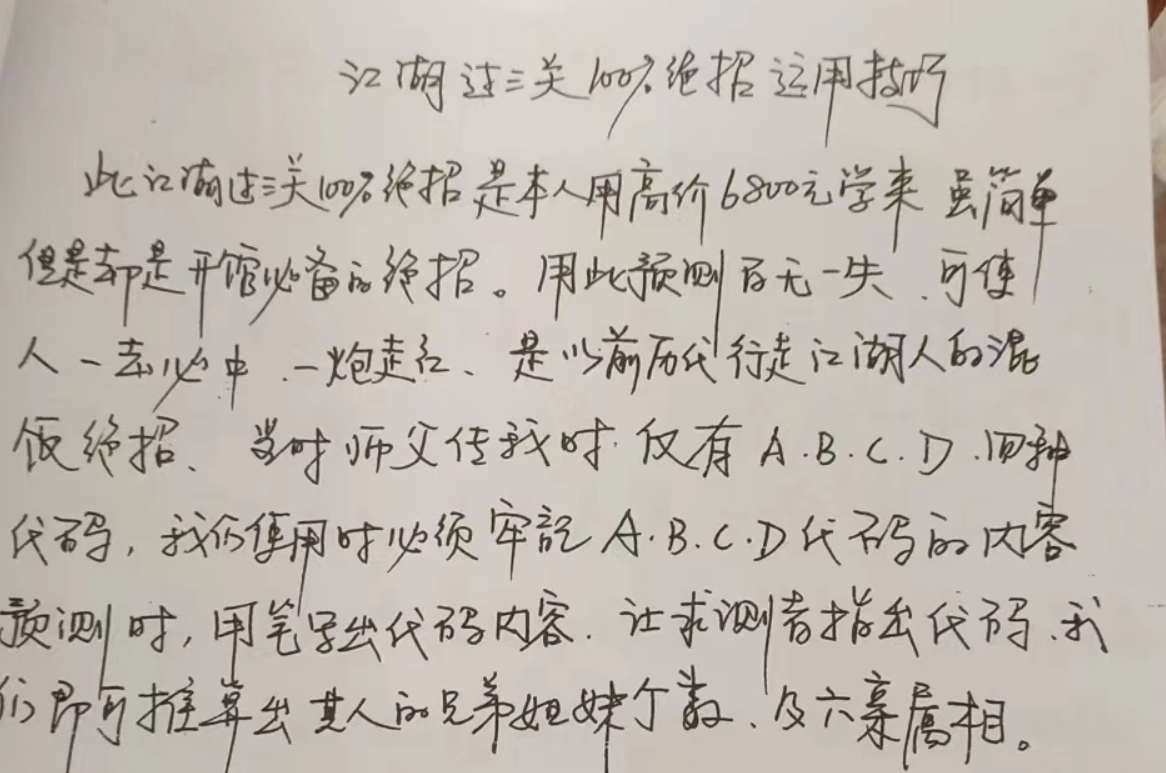 江湖过三关100%绝招运用技巧
此江湖过三关100%绝招是本人用高价6800元学来 虽简单
但是却是开馆必备的绝招。用此预测百无一失、可使
人一去必中、一炮走红、是以前历代行走江湖人的混
饭绝招、当时师父传我时.仅有A.B.C.D.四种
代码,我们使用时必须牢记A.B.C.D代码的内容
预测时,用笔写出代码内容.让求测者指出代码、我
们即可推算出其人的兄弟姐妹个数、及六亲属相。